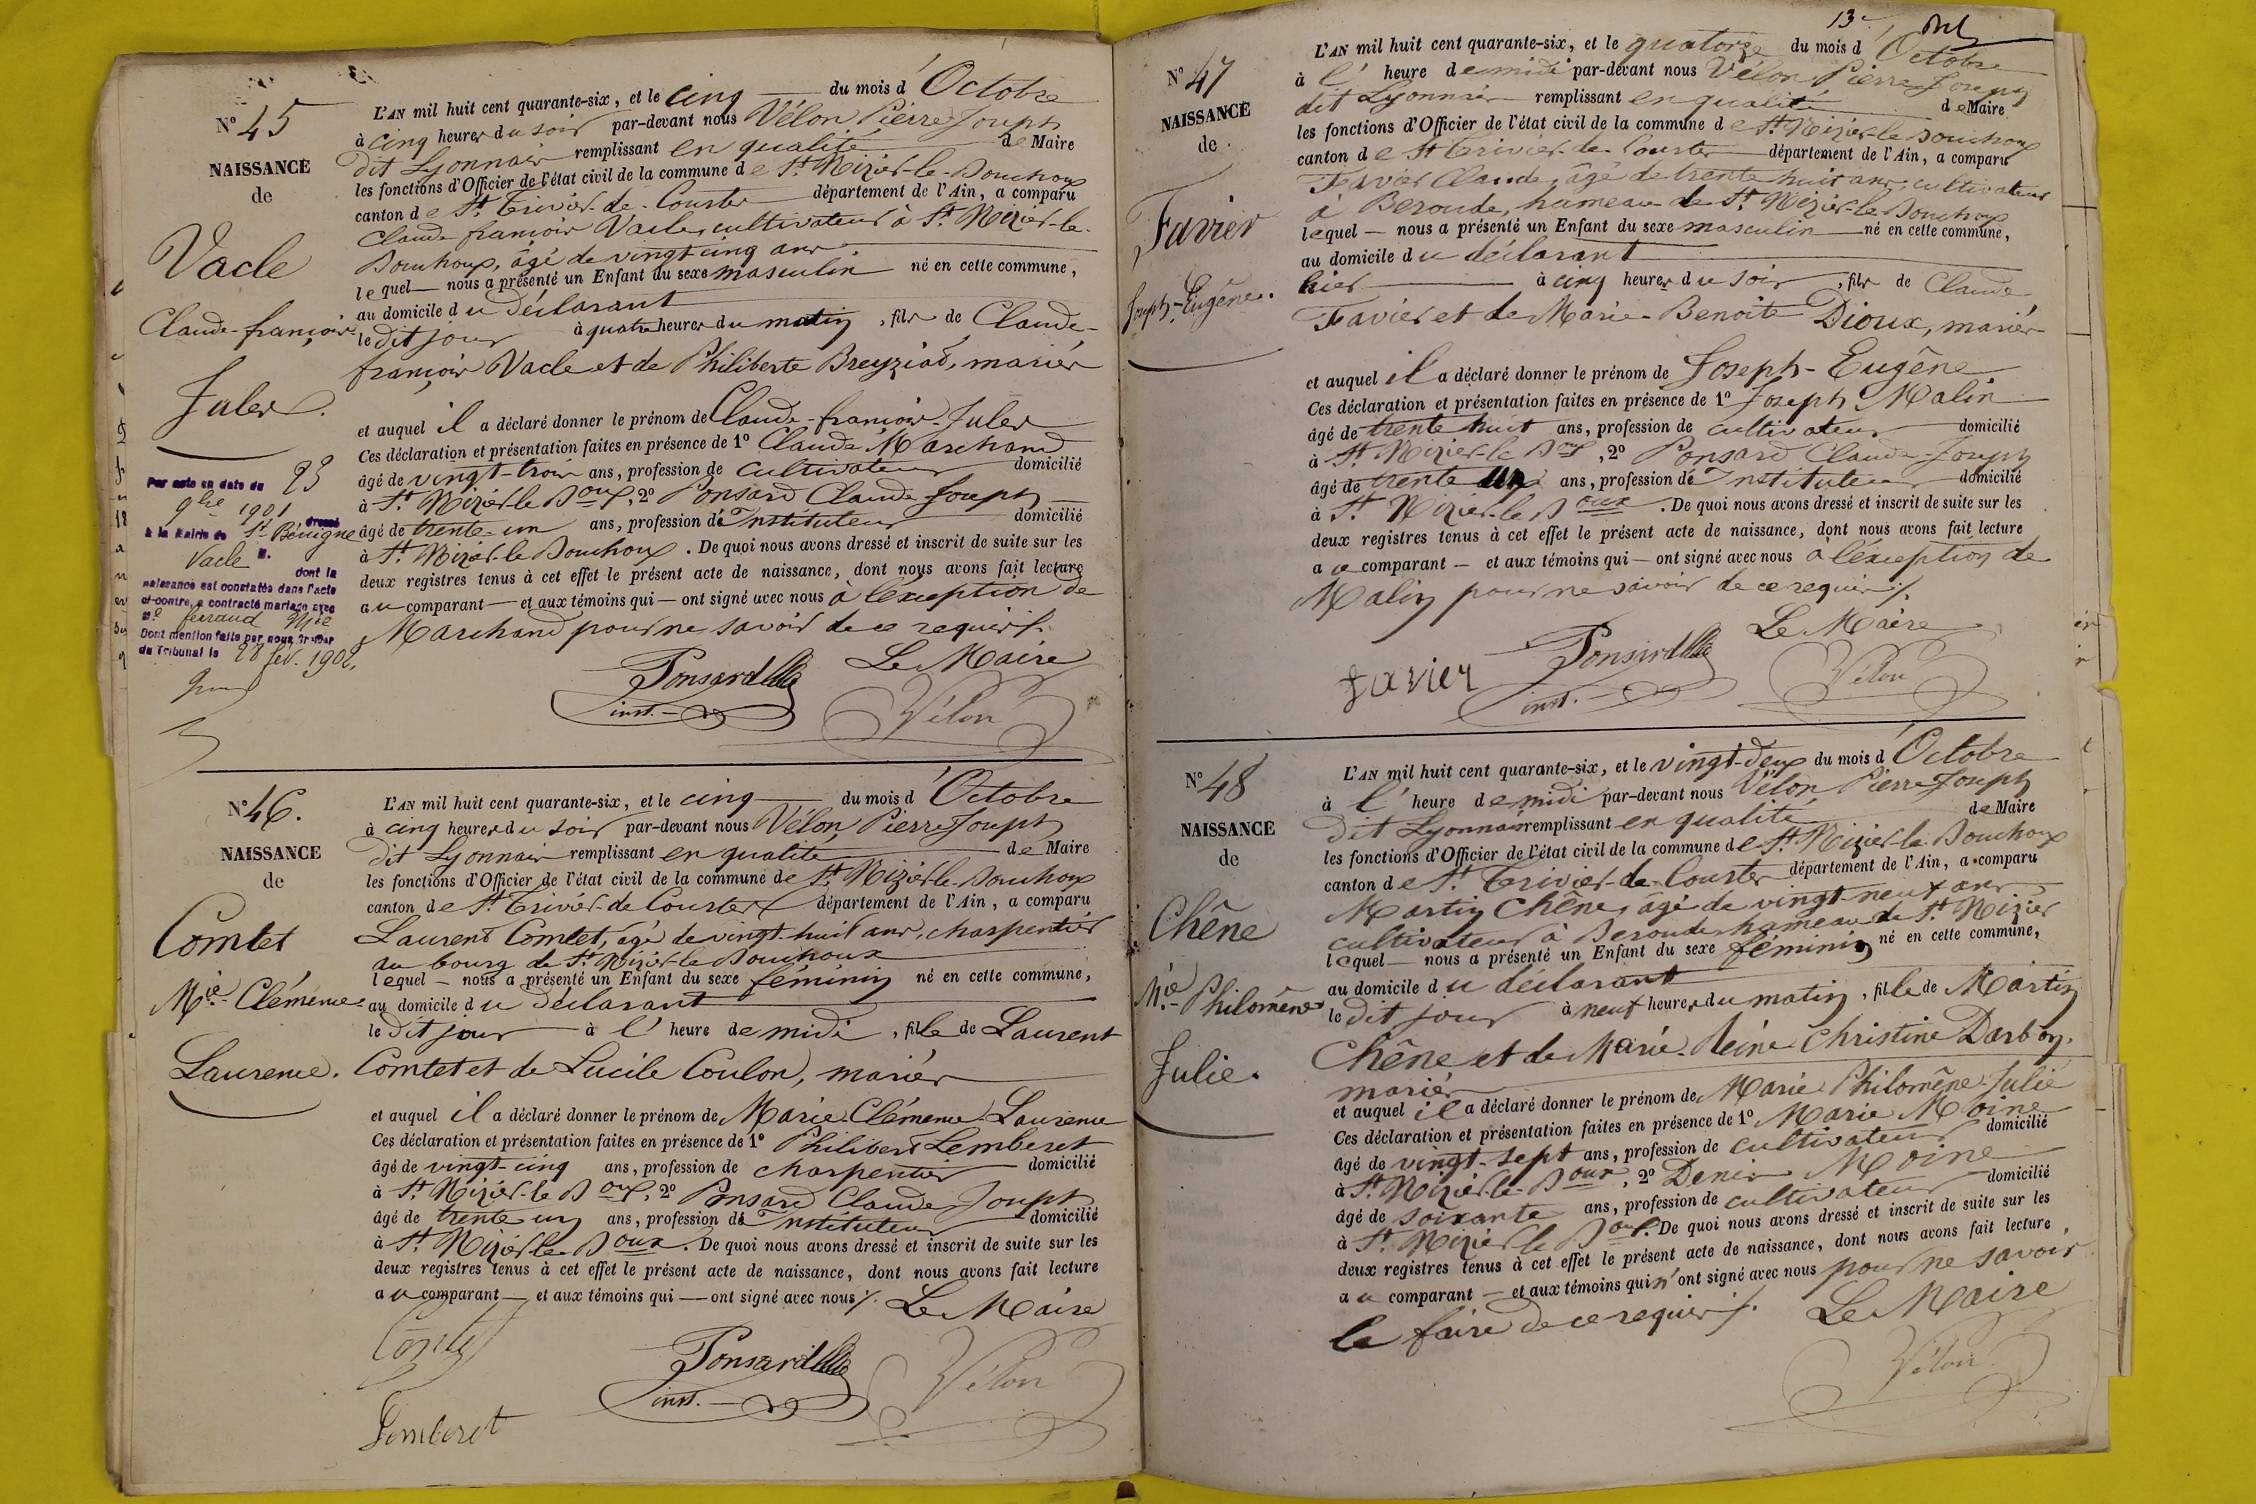 N° 45
NAISSANCE
de
Vacle
Claude-françois
Jules.
Par acte en date du 23
9bre 1901 dressé
à la Mairie de St Bénigne
Vacle M. dont la
naissance est constatée dans l'acte
ci-contre, a contracté mariage avec
Mle feraud Mie
Dont mention faite par nous, greffier
du Tribunal le 28 fév. 1902.
L'AN mil huit cent quarante-six, et le cinq du mois d'Octobre
à cinq heures du soir par-devant nous Vélon Pierre Joseph
dit Lyonnais remplissant en qualité de Maire
les fonctions d'Officier de l'état civil de la commune de St Nizier-le-Bouchoux
canton de St Trivier-de-Courtes département de l'Ain, a comparu
Claude françois Vacle, cultivateur à St Nizier-le-
Bouchoux, âgé de vingt cinq ans
lequel — nous a présenté un Enfant du sexe masculin né en cette commune,
au domicile du déclarant
le dit jour à quatre heures du matin, fils de Claude-
françois Vacle et de Philiberte Breyziad, mariés
et auquel il a déclaré donner le prénom de Claude-françois-Jules
Ces déclaration et présentation faites en présence de 1° Claude Marchand
âgé de vingt-trois ans, profession de cultivateur domicilié
à St Nizier-le Boux, 2° Ponsard Claude Joseph
âgé de trente-un ans, profession d'Instituteur domicilié
à St Nizier-le Bouchoux. De quoi nous avons dressé et inscrit de suite sur les
deux registres tenus à cet effet le présent acte de naissance, dont nous avons fait lecture
au comparant — et aux témoins qui — ont signé avec nous à l'exception de
Marchand pour ne savoir de ce requis ./.
Ponsard Le Maire
inst. Vélon
N° 46.
NAISSANCE
de
Comtet
Mie-Clémence
Laurence.
L'AN mil huit cent quarante-six, et le cinq du mois d'Octobre
à cinq heures du soir par-devant nous Vélon Pierre Joseph
dit Lyonnais remplissant en qualité de Maire
les fonctions d'Officier de l'état civil de la commune de St Nizier-le-Bouchoux
canton de St Trivier-de Courtes département de l'Ain, a comparu
Laurent Comtet, âgé de vingt-huit ans, charpentier
au bourg de St Nizier-le Bouchoux
lequel — nous a présenté un Enfant du sexe féminin né en cette commune,
au domicile du déclarant
le dit jour à l'heure de midi, fille de Laurent
Comtet et de Lucile Coulon, mariés
et auquel il a déclaré donner le prénom de Marie-Clémence-Laurence
Ces déclaration et présentation faites en présence de 1° Philibert Lemberet
âgé de vingt-cinq ans, profession de charpentier domicilié
à St Nizier-le Boux, 2° Ponsard Claude Joseph
âgé de trente un ans, profession d'Instituteur domicilié
à St Nizier le Boux. De quoi nous avons dressé et inscrit de suite sur les
deux registres tenus à cet effet le présent acte de naissance, dont nous avons fait lecture
au comparant — et aux témoins qui — ont signé avec nous ./. Le Maire
Comtet Ponsard Vélon
inst.
Lemberet
13e
N° 47
NAISSANCE
de
Favier
Joseph-Eugène.
L'AN mil huit cent quarante-six, et le quatorze du mois d'Octobre
à l'heure de midi par-devant nous Vélon Pierre Joseph
dit Lyonnais remplissant en qualité de Maire
les fonctions d'Officier de l'état civil de la commune de St Nizier-le Bouchoux
canton de St Trivier-de-Courtes département de l'Ain, a comparu
Favier Claude, âgé de trente huit ans, cultivateur
à Beroude, hameau de St Nizier-le Bouchoux
lequel — nous a présenté un Enfant du sexe masculin né en cette commune,
au domicile du déclarant
hier à cinq heures du soir, fils de Claude
Favier et de Marie-Benoîte Dioux, mariés
et auquel il a déclaré donner le prénom de Joseph-Eugène
Ces déclaration et présentation faites en présence de 1° Joseph Malin
âgé de trente huit ans, profession de cultivateur domicilié
à St Nizier-le Boux, 2° Ponsard Claude-Joseph
âgé de trente un ans, profession d'Instituteur domicilié
à St Nizier-le Boux. De quoi nous avons dressé et inscrit de suite sur les
deux registres tenus à cet effet le présent acte de naissance, dont nous avons fait lecture
au comparant — et aux témoins qui — ont signé avec nous à l'exception de
Malin pour ne savoir de ce requis ./.
favier Ponsard Le Maire
inst. Vélon
N° 48
NAISSANCE
de
Chêne
Mie-Philomène
Julie.
L'AN mil huit cent quarante-six, et le vingt-deux du mois d'Octobre
à l'heure de midi par-devant nous Vélon Pierre Joseph
dit Lyonnais remplissant en qualité de Maire
les fonctions d'Officier de l'état civil de la commune de St Nizier-le Bouchoux
canton de St Trivier-de-Courtes département de l'Ain, a comparu
Martin Chêne, âgé de vingt-neuf ans
cultivateur à Beroude hameau de St Nizier
lequel — nous a présenté un Enfant du sexe féminin né en cette commune,
au domicile du déclarant
le dit jour à neuf heures du matin, fille de Martin
Chêne et de Marie-Reine Christine Darbon,
mariés
et auquel il a déclaré donner le prénom de Marie Philomène-Julie
Ces déclaration et présentation faites en présence de 1° Marie Moine
âgé de vingt-sept ans, profession de cultivateur domicilié
à St Nizier-le-Boux, 2° Denis Moine
âgé de soixante ans, profession de cultivateur domicilié
à St Nizier le Boux. De quoi nous avons dressé et inscrit de suite sur les
deux registres tenus à cet effet le présent acte de naissance, dont nous avons fait lecture
au comparant — et aux témoins qui n'ont signé avec nous pour ne savoir
le faire de ce requis ./. Le Maire
Vélon